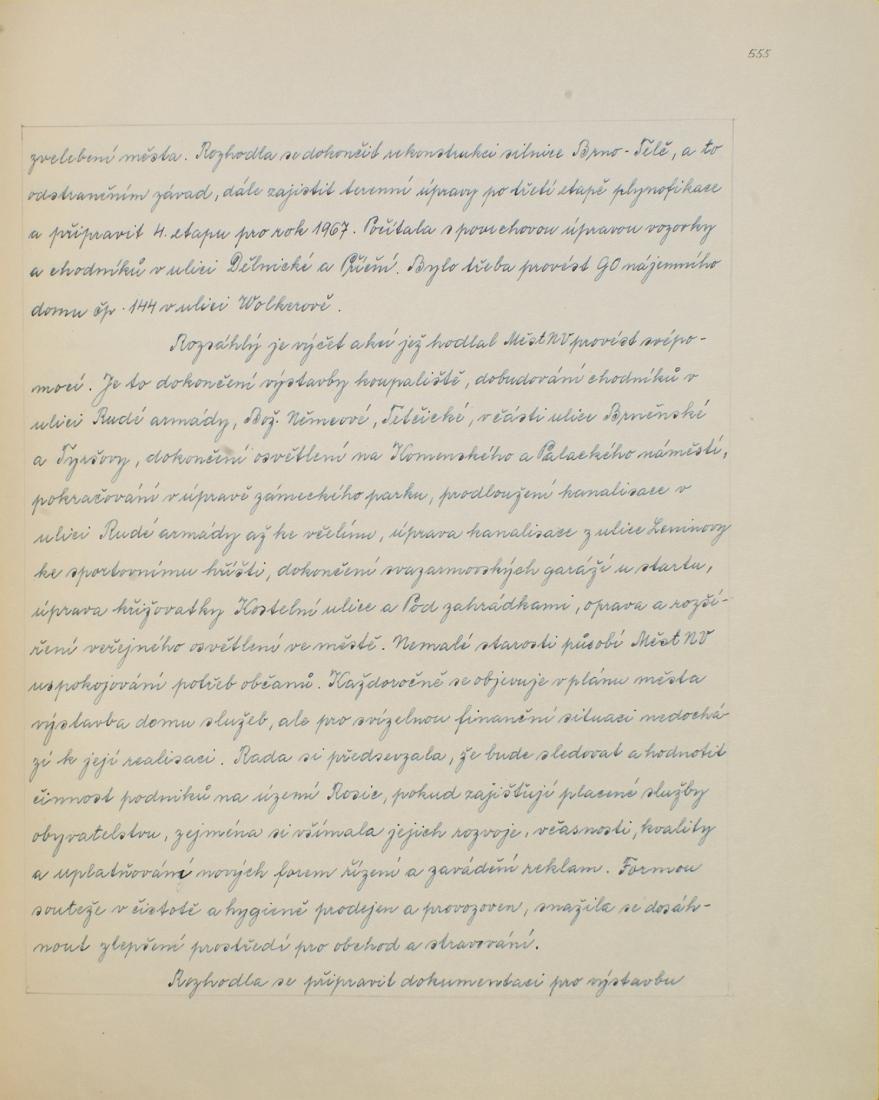 555
zvelebení města. Rozhodla se dokončit rekonstrukci silnice Brno - Télč, a to
odstraněním závad, dále zajistit terenní úpravy po třetí etapě plynofikace
a připravit 4. etapu pro rok 1967. Počítala s povrchovou úpravou vozovky
a chodníků v ulici Dělnické a Příční. Bylo třeba provést GO nájemního
domu čp. 144 v ulici Wolkerově.
Rozsáhlý je výčet akcí jež hodlal MěstNV provést svépo-
mocí. Je to dokončení výstavby koupaliště, dobudování chodníků v
ulici Rudé armády, Bož. Němcové, Tetčické, v části ulice Brněnské
a Tyršovy, dokončení osvětlení na Komenského a Palackého náměstí,
pokračování v úpravě zámeckého parku, prodloužení kanalisace v
ulici Rudé armády až ke včelínu, úprava kanalisace z ulice Leninovy
ke sportovnímu hřišti, dokončení svazarmovských garáží u startu,
úprava křižovatky Kostelní ulice a Pod zahrádkami, oprava a rozší-
ření veřejného osvětlení ve městě. Nemalé starosti působí MěstNV
uspokojování potřeb občanů. Každoročně se objevuje v plánu města
výstavba domu služeb, ale pro svízelnou finanční situaci nedochá-
zí k její realisaci. Rada si předsevzala, že bude sledovat a hodnotit
činnost podniků na území Rosic, pokud zajišťují placené služby
obyvatelstvu, zejména si všímala jejich rozvoje, včasnosti, kvality
a uplatňování nových forem řízení a zavádění reklam. Formou
souteže v čistotě a hygieně prodejen a provozoven, snažila se dosáh-
nout zlepšení prostředí pro obchod a stravování.
Rozhodla se připravit dokumentaci pro výstavbu